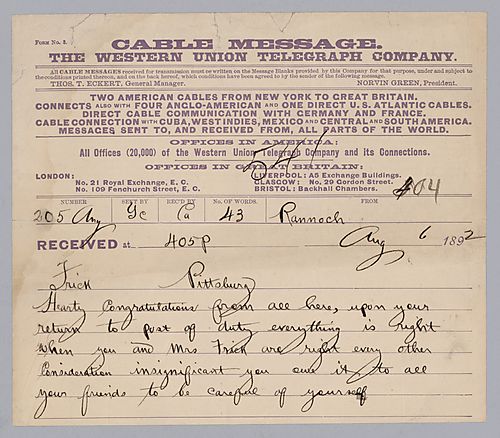 FORM No. 2.
CABLE MESSAGE.
THE WESTERN UNION TELEGRAPH COMPANY.
All CABLE MESSAGES received for transmission must be written on the Message Blanks provided by this Company for that purpose, under and subject to
the conditions printed thereon, and on the back hereof, which conditions have been agreed to by the sender of the following message.
THOS. T. ECKERT, General Manager. NORVIN GREEN, President.
TWO AMERICAN CABLES FROM NEW YORK TO GREAT BRITAIN.
CONNECTS ALSO WITH FOUR ANGLO-AMERICAN AND ONE DIRECT U.S. ATLANTIC CABLES.
DIRECT CABLE COMMUNICATION WITH GERMANY AND FRANCE.
CABLE CONNECTION WITH CUBA, WEST INDIES, MEXICO AND CENTRAL AND SOUTH AMERICA.
MESSAGES SENT TO, AND RECEIVED FROM, ALL PARTS OF THE WORLD.
OFFICES IN AMERICA:
All Offices (20,000) of the Western Union Telegraph Company and its Connections.
OFFICES IN GREAT BRITAIN:
LONDON: LIVERPOOL: A5 Exchange Buildings.
No. 21 Royal Exchange, E. C. GLASGOW: No. 29 Gordon Street.
No. 109 Fenchurch Street, E. C. BRISTOL: Backhall Chambers.
404
NUMBER SENT BY REC'D BY No. OF WORDS. FROM
205 Any Gc Ca 43 Rannoch
RECEIVED at 405P Aug 6 1892
Frick Pittsburg
Hearty Congratulations from all here, upon your
return to post of duty everything is right
when you and Mrs Frick are right every other
Consideration insignificant you owe it to all
your friends to be careful of yourself